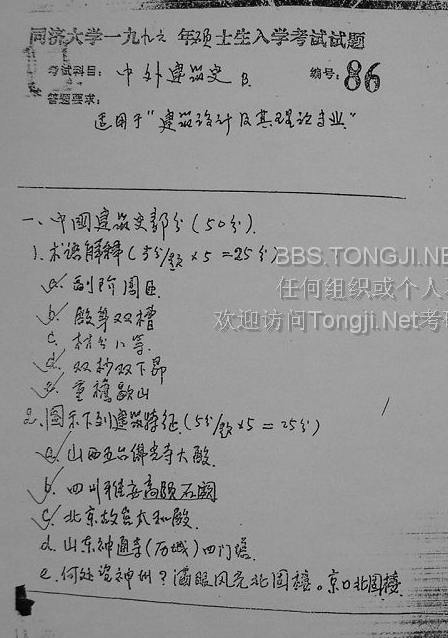 同济大学一九九六年硕士生入学考试试题
考试科目：中外建筑史B 编号：86
答题要求：
适用于"建筑设计及其理论专业"
一、中國建筑史部分(50分).
1.术语解释(5分/题×5=25分)
a. 副阶周匝
b. 殿身双槽
c. 材分八等.
d. 双抄双下昂
e. 重檐歇山
2.图示下列建筑特征.(5分/题×5=25分)
a. 山西五台佛光寺大殿.
b. 四川雅安高颐石闕
c. 北京故宫太和殿.
d. 山东神通寺(历城)四门塔.
e. 何处望神州?满眼风光北固楼。京口北固楼
BBS.TONGJI.NE
任何组织或个人
欢迎访问Tongji.Net考研